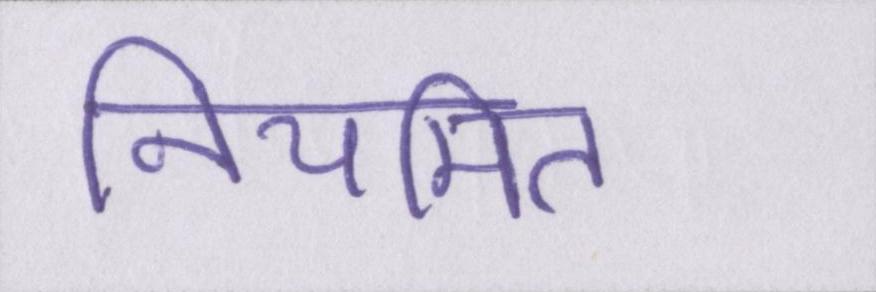 नियमित